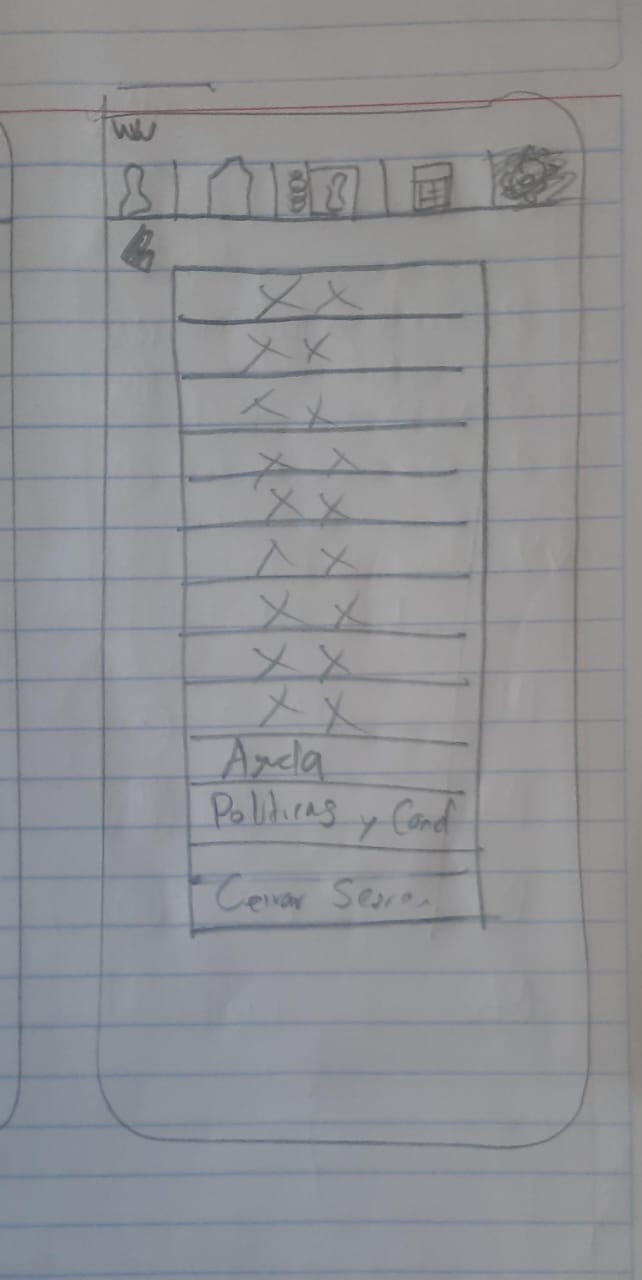 WW
X X
X X
X X
X X
X X
X X
X X
X X
X X
Ayuda
Politicas y Cond
Cerrar Sesion